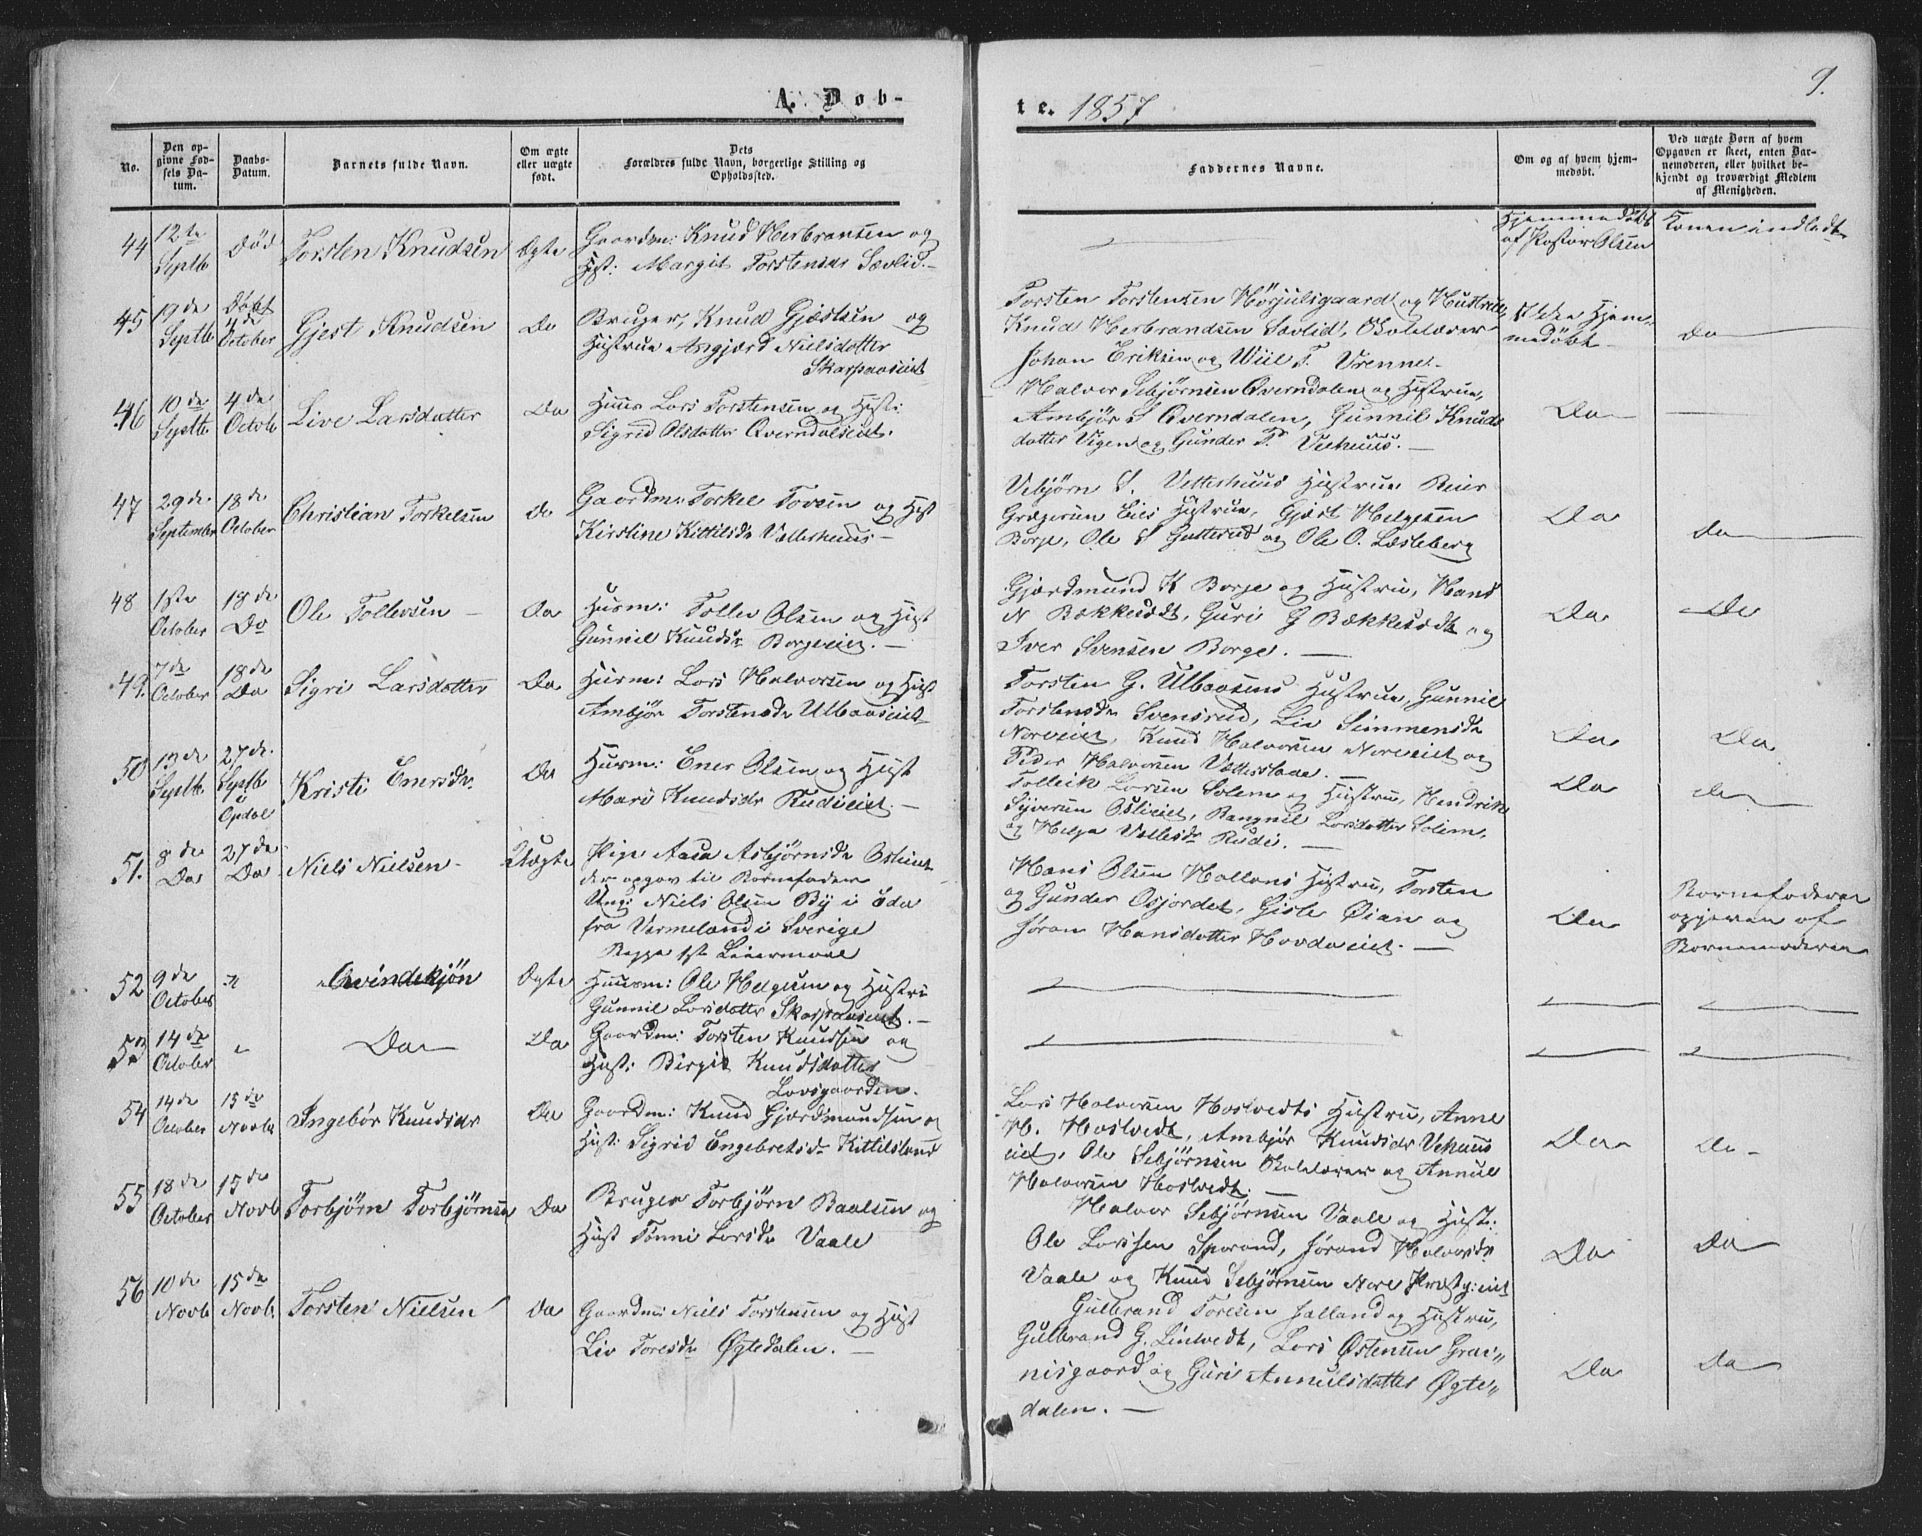 A. Døb-
te. 1857
9.
No.
Den op-
givne Fød-
sels Da-
tum.
Daabs-
Datum.
Barnets fulde Navn.
Om ægte
eller uægte
født.
Dets
Forældres fulde Navn, borgerlige Stilling og
Opholdssted.
Faddernes Navne.
Om og af hvem hjem-
medøbt.
Ved uægte Børn af hvem
Opgaven er skeet, enten Bar-
nemoderen, eller hvilket be-
kjendt og troværdigt Medlem
af Menigheden.
44
12te
Septb.
Død
Torsten Knudsen
Ægte
Gaardm: Knud Herbransen og
Hst: Margit Torstensdr Sævlid.
Hjemmedøbt
af Pastor Olsen
Konen indledt
45
19de
Septb.
Døbt
4de
October
Gjest Knudsen
Do
Bruger, Knud Gjæstsen og
Hustrue Angjærd Nielsdatter
Skarpaaseiet
Torsten Torstensen Hørjulsgaard og Hustrue,
Knud Herbrandsen Sævlid, Skolelærer
Johan Eriksen og Wiil T. Vrenne.
Ikke Hjem-
medøbt
Do
46
10de
Septb.
4de
Octob.
Live Larsdatter
Do
Huus Lars Torstensen og Hust:
Sigrid Olsdatter Qverndaleiet.
Halvor Sebjørnsen Qverndalen og Hustrue,
Ambjør S Qverndalen, Gunnil Knuds
datter Vigen og Gunder T. Veehuus.
Do
47
29de
September
18de
October
Christian Torkelsen
Do
Gaardm: Torkel Tovsen og Hst
Kirstine Kittilsdr Vetterhuus
Vebjørn S. Vetterhuus Hustrue Reier
Grægersen Eies Hustrue, Gjæst Helgesen
Borge, Ole S Gutterud og Ole O. Læsteberg
Do
Do
48
1ste
October
18de
Do
Ole Tollevsen
Do
Husm: Tollev Olsen og Hust
Gunnil Knudsdr Borgeeiet.
Gjærdmund K Borge og Hustru, Hans
N Bækkesødt, Guri G Bækkesødt og
Iver Svensen Borge.
Do
Do
49.
7de
October
18de
Do
Sigri Larsdatter
Do
Husm: Lars Halvorsen og Hust
Ambjør Torstensdr Ulbaaseiet
Torsten G. Ulbaasens Hustrue, Gunnil
Torstensdr Svensrud, Liv Simmensdr
Noreeiet, Knud Halvorsen Noreeiet og
Peder Halvorsen Vættesslaae.
Do
Do
50
13de
Septb.
27de
Septb.
i
Opdal
Kristi Enersdr
Do
Husm: Ener Olsen og Hust
Mari Knudsdr Rudieiet.
Tolleik Larsen Solem og Hustru, Hendrik
Syversen Oslieiet, Rangnil Larsdatter Solem,
og Helga Vetlesdr Rudi.
Do
Do
51.
8de
Do
27de
Do
Niels Nielsen
Uægte
Pige Aasa Asbjørnsdr Oslieiet
der opgav til Barnefader
Ung: Niels Olsen By i Eda
fra Vermeland i Sverige
Begges 1ste Leiermaal
Hans Olsen Hallans Hustru, Torsten
og Gunder Osjordet, Gisle Øian og
Jøran Hansdatter Hovdeeiet.
Do
Barnefaderen
opgiven af
Barnemoderen
52
9de
October
"
Qvindekjøn
Ægte
Huusm: Ole Helgesen og Hustru
Gunnil Larsdatter Skarpaaseiet.
53
14de
October
"
Do
Do
Gaardm: Torsten Knudsen og
Hust: Birgit Knudsdatter
Lovsgaarden.
54
14de
October
15de
Novbr
Ingebør Knudsdr
Do
Gaardm: Knud Gjærdmundsen og
Hust: Sigrid Engebretsdr Kittilsland
Lars Halvorsen Hostvedts Hustru, Anne
H. Hostvedt, Ambjør Knudsdr Vehuus
eiet, Ole Sebjørnsen Skolelærer og Annul
Halvorsen Hostvedt.
Do
Do
55
18de
October
15de
Novb.
Torbjørn Torbjørnsen
Do
Bruger Torbjørn Baalsen og
Hust Tønni Larsdr Vaale
Halvor Sebjørnsen Vaale og Hust:
Ole Larssen Sporand, Jørand Halvorsdr
Vaale og Knud Sebjørnsen Nore Præstg:eiet
Do
Do
56
10de
Novb.
15de
Novb.
Torsten Nielsen
Do
Gaardm: Niels Torstensen og Hust
Liv Toresdr Øgtedalen.
Gulbrand Toresen Jalland og Hustru,
Gulbrand G. Lintvedt, Lars Østensen Gran-
nisgaard og Guri Annulsdatter Øgte-
dalen.
Do
Do